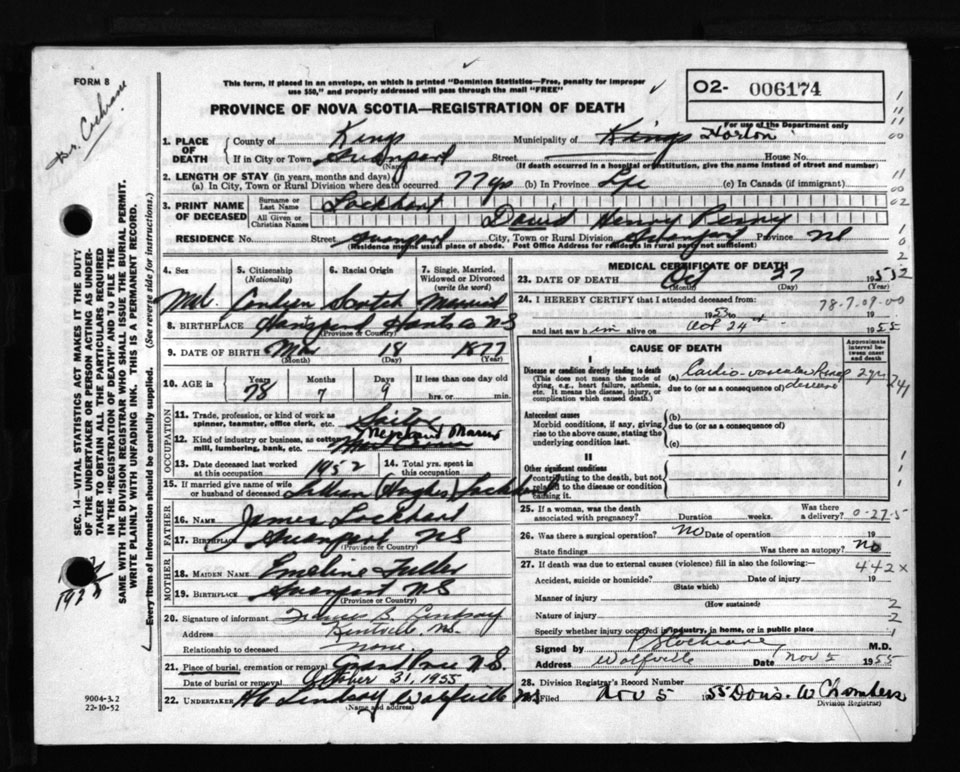 FORM 8
Dr. Cochrane
This form, if placed in an envelope, on which is printed "Dominion Statistics—Free, penalty for improper
use $50," and properly addressed will pass through the mail "FREE"
PROVINCE OF NOVA SCOTIA—REGISTRATION OF DEATH
O2- 006174
For use of the Department only
SEC. 14—VITAL STATISTICS ACT MAKES IT THE DUTY
OF THE UNDERTAKER OR PERSON ACTING AS UNDER-
TAKER TO OBTAIN ALL THE PARTICULARS REQUIRED
IN THE "REGISTRATION OF DEATH" AND TO FILE THE
SAME WITH THE DIVISION REGISTRAR WHO SHALL ISSUE THE BURIAL PERMIT.
WRITE PLAINLY WITH UNFADING INK. THIS IS A PERMANENT RECORD.
Every item of information should be carefully supplied. (See reverse side for instructions.)
1. PLACE OF DEATH County of Kings Municipality of Kings Horton
If in City or Town Avonport Street House No.
(Name) (If death occurred in a hospital or institution, give the name instead of street and number)
2. LENGTH OF STAY (in years, months and days)
(a) In City, Town or Rural Division where death occurred 77 yrs (b) In Province Life (c) In Canada (if immigrant)
3. PRINT NAME OF DECEASED Surname or Last Name Lockhart
All Given or Christian Names David Henry Perry
RESIDENCE No. Street Avonport City, Town or Rural Division Avonport Province NS
(Residence means usual place of abode. Post Office Address for residents in rural parts not sufficient)
4. Sex 5. Citizenship (Nationality) 6. Racial Origin 7. Single, Married, Widowed or Divorced (write the word)
Male Canadian Scotch Married
8. BIRTHPLACE Hantsport Hants Co NS
(Province or Country)
9. DATE OF BIRTH Mar 18 1877
(Month) (Day) (Year)
10. AGE in Years Months Days If less than one day old
78 7 9 hrs. or min.
OCCUPATION
11. Trade, profession, or kind of work as spinner, teamster, office clerk, etc. Sailor
12. Kind of industry or business, as cotton mill, lumbering, bank, etc. Merchant Marine
13. Date deceased last worked at this occupation 1952 14. Total yrs. spent in this occupation
15. If married give name of wife or husband of deceased Lillian (Hughes) Lockhart
FATHER
16. NAME James Lockhart
17. BIRTHPLACE Avonport NS
(Province or Country)
MOTHER
18. MAIDEN NAME Emeline Fuller
19. BIRTHPLACE Avonport NS
(Province or Country)
20. Signature of informant B. Lindsay
Address Kentville, NS.
Relationship to deceased none.
21. Place of burial, cremation or removal Grand Pre N.S.
Date of burial or removal October 31, 1955
22. UNDERTAKER Lindsay Wolfville NS
(Name and address)
9004-3.2
22-10-52
MEDICAL CERTIFICATE OF DEATH
23. DATE OF DEATH Oct 27 1955
(Month) (Day)
24. I HEREBY CERTIFY that I attended deceased from
78.7.09.00
1953
and last saw him alive on Oct 24 1955
CAUSE OF DEATH
Approximate interval between onset and death
I
Disease or condition directly leading to death (a) Cardio-vascular Renal 2 yrs
(This does not mean the mode of dying, e.g., heart failure, asthenia, etc. It means the disease, injury, or complication which caused death.)
due to (or as a consequence of) disease
Antecedent causes (b)
Morbid conditions, if any, giving rise to the above cause, stating the underlying condition last.
due to (or as a consequence of)
(c)
II
Other significant conditions
contributing to the death, but not related to the disease or condition causing it.
25. If a woman, was the death associated with pregnancy? Duration weeks. Was there a delivery? 0-27-5
26. Was there a surgical operation? No Date of operation 19
State findings Was there an autopsy? No
27. If death was due to external causes (violence) fill in also the following:— 442x
Accident, suicide or homicide? Date of injury 19
(State which)
Manner of injury
(How sustained)
Nature of injury
Specify whether injury occurred in industry, in home, or in public place
Signed by Cochrane M.D.
Address Wolfville Date Nov 5 1955
28. Division Registrar's Record Number
Filed Nov 5 1955 Doris. W Chambers
Division Registrar